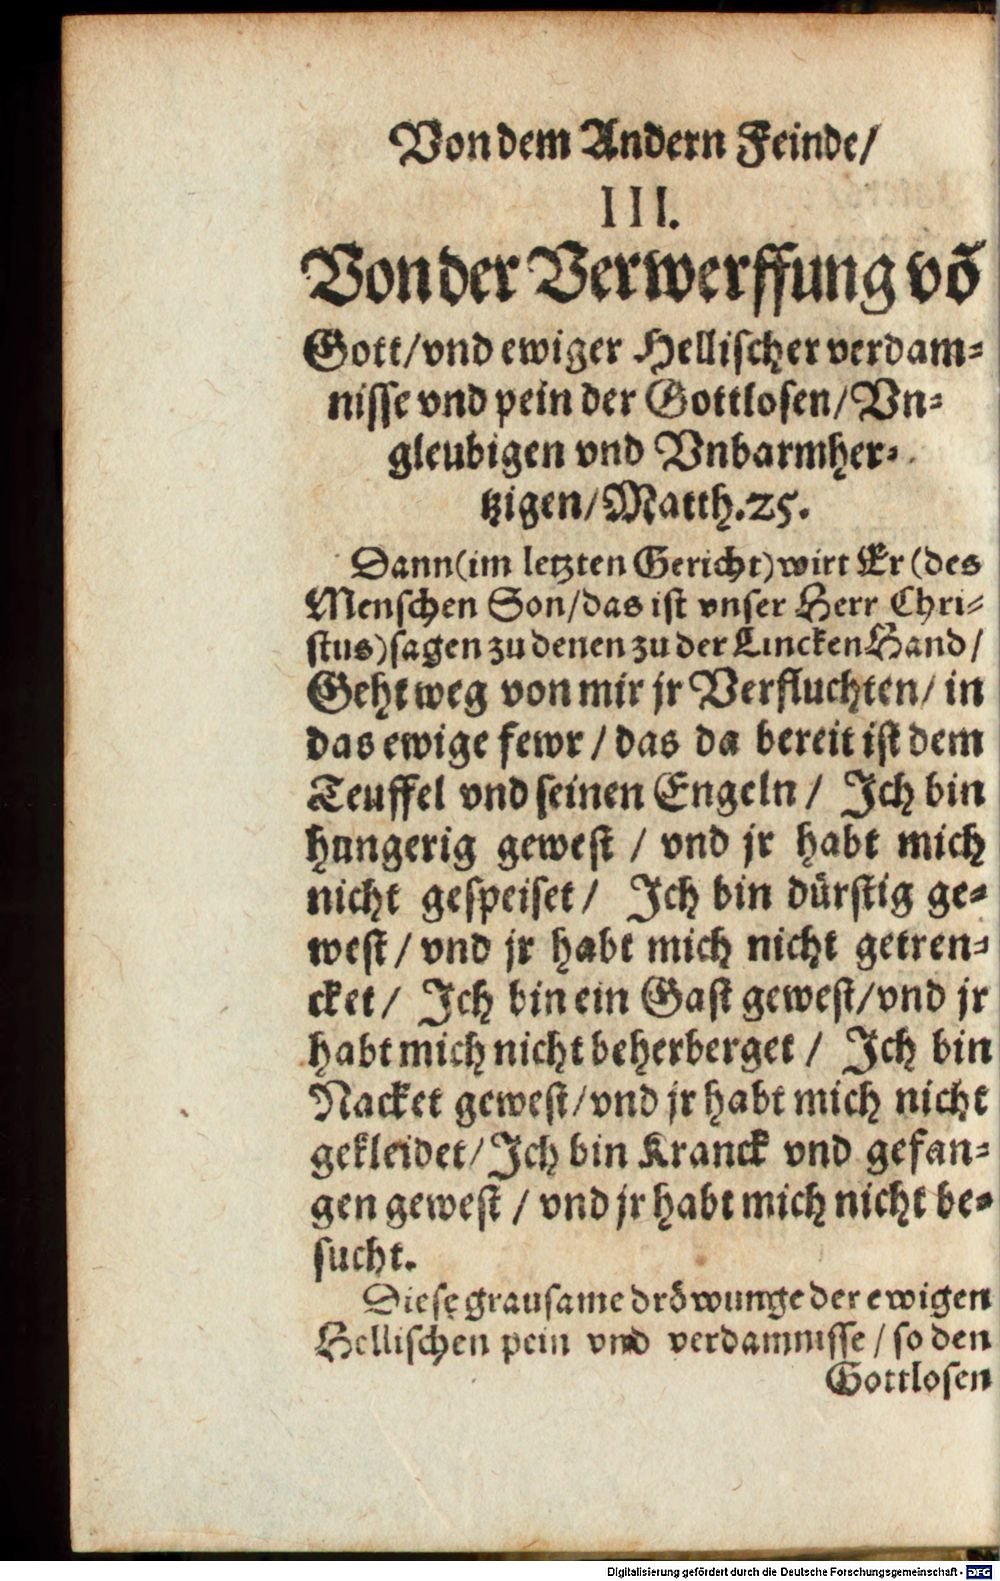 Von dem Andern Feinde/
III.
Von der Verwerffung võ
Gott/vnd ewiger Hellischer verdam-
nisse vnd pein der Gottlosen/Vn-
gleubigen vnd Vnbarmher-
tzigen/Matth.25.
Dann(im letzten Gericht)wirt Er(des
Menschen Son/das ist vnser Herr Chri-
stus)sagen zu denen zu der Lincken Hand/
Geht weg von mir jr Verfluchten/ in
das ewige fewr/das da bereit ist dem
Teuffel vnd seinen Engeln/ Ich bin
hungerig gewest/vnd jr habt mich
nicht gespeiset/ Ich bin dürstig ge-
west/vnd jr habt mich nicht getren-
cket/ Ich bin ein Gast gewest/vnd jr
habt mich nicht beherberget/ Ich bin
Nacket gewest/vnd jr habt mich nicht
gekleidet/Ich bin Kranck vnd gefan-
gen gewest/vnd jr habt mich nicht be-
sucht.
Diese grausame dröwunge der ewigen
Hellischen pein vnd verdamnisse/so den
Gottlosen
Digitalisierung gefördert durch die Deutsche Forschungsgemeinschaft - DFG